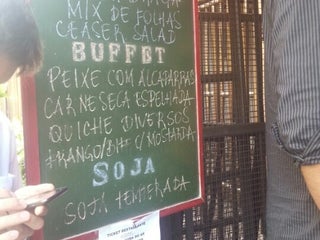 MIX DE FOLHAS
CEASER SALAD
BUFFET
PEIXE COM ALCAPARRAS
CARNE SECA ESPELHADA
QUICHE DIVERSOS
FRANGO/BIFE C/MOSTARDA
SOJA
SOJA TEMPERADA
TICKET RESTAURANTE